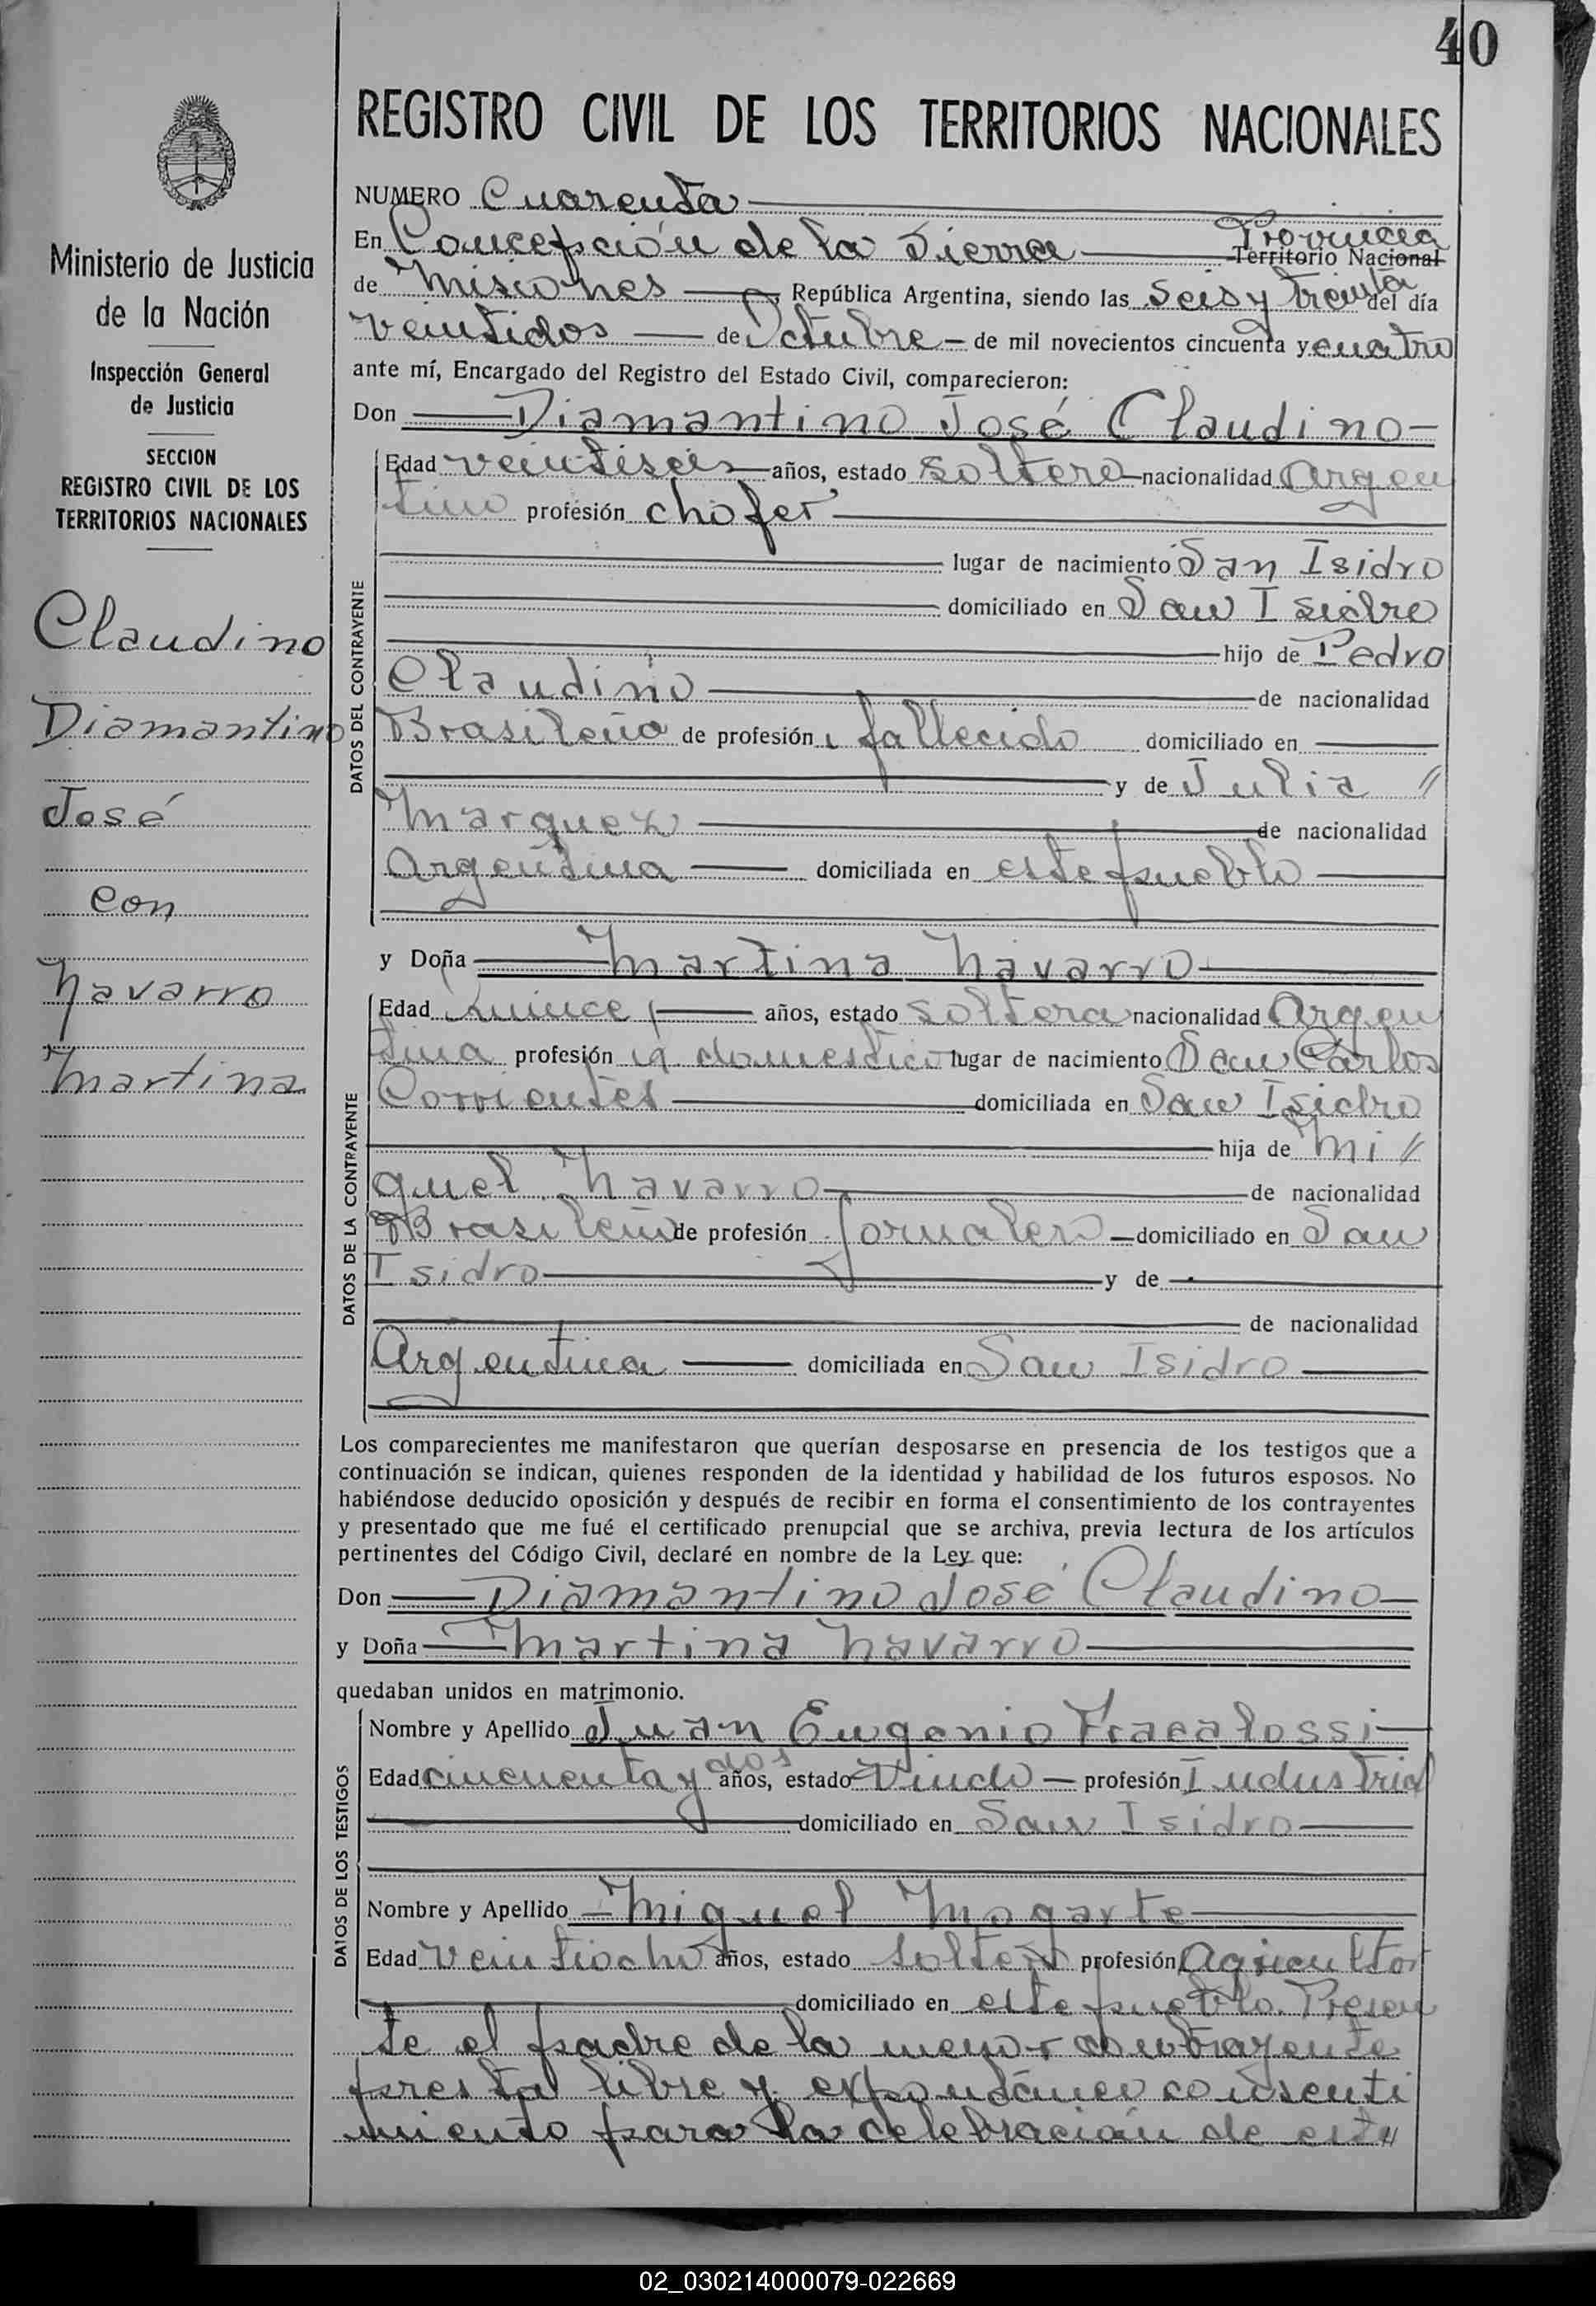 40
REGISTRO CIVIL DE LOS TERRITORIOS NACIONALES
Ministerio de Justicia
de la Nación
Inspección General
de Justicia
SECCION
REGISTRO CIVIL DE LOS
TERRITORIOS NACIONALES
Claudino
Diamantino
José
con
Navarro
Martina
NUMERO Cuarenta
En Concepción de la Sierra Provincia Territorio Nacional
de Misiones, República Argentina, siendo las Seis y treinta del día
veintidos de Octubre de mil novecientos cincuenta y cuatro
ante mí, Encargado del Registro del Estado Civil, comparecieron:
Don Diamantino José Claudino
DATOS DEL CONTRAYENTE
Edad veintiseis años, estado soltero nacionalidad Argen
tino profesión chofer
lugar de nacimiento San Isidro
domiciliado en San Isidro
hijo de Pedro
Claudino de nacionalidad
Brasileño de profesión fallecido domiciliado en
y de Julia //
Marquez de nacionalidad
Argentina domiciliada en este pueblo
y Doña Martina Navarro
DATOS DE LA CONTRAYENTE
Edad Quince años, estado soltera nacionalidad Argen
tina profesión q. domestico lugar de nacimiento San Carlos
Corrientes domiciliada en San Isidro
hija de Mi //
guel Navarro de nacionalidad
Brasileño de profesión Jornalero domiciliado en San
Isidro y de
de nacionalidad
Argentina domiciliada en San Isidro
Los comparecientes me manifestaron que querían desposarse en presencia de los testigos que a
continuación se indican, quienes responden de la identidad y habilidad de los futuros esposos. No
habiéndose deducido oposición y después de recibir en forma el consentimiento de los contrayentes
y presentado que me fué el certificado prenupcial que se archiva, previa lectura de los artículos
pertinentes del Código Civil, declaré en nombre de la Ley que:
Don Diamantino José Claudino
y Doña Martina Navarro
quedaban unidos en matrimonio.
DATOS DE LOS TESTIGOS
Nombre y Apellido Juan Eugenio Fracalossi
Edad cincuenta y dos años, estado Viudo profesión Industrial
domiciliado en San Isidro
Nombre y Apellido Miguel Mogarte
Edad veintiocho años, estado soltero profesión Agricultor
domiciliado en este pueblo. Presen
te el padre de la menor contrayente
presta libre y expontáneo consenti
miento para la celebración de este //
02_030214000079-022669